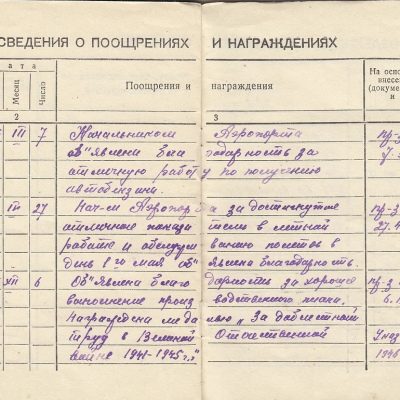 СВЕДЕНИЯ О ПООЩРЕНИЯХ И НАГРАЖДЕНИЯХ
а т а
Месяц Число Поощрения и награждения На осно
внесен
(докумен
и
2 3
III 7 Начальником Аэропорта пр-
об"явлена благодарность за
отличную работу по получению
автобензина.
IV 27 Нач-м Аэропорта за достигнутые пр-з
отличные показатели в летной 27.4
работе и обслуживанию полетов в
день 1го мая об"явлена благодарность.
XII 6 Об"явлена благодарность за хорошее пр-з
выполнение производственного плана. 6.1
Награждена медалью "За доблестный
труд в Великой Отечественной Указ
войне 1941-1945г." 1946